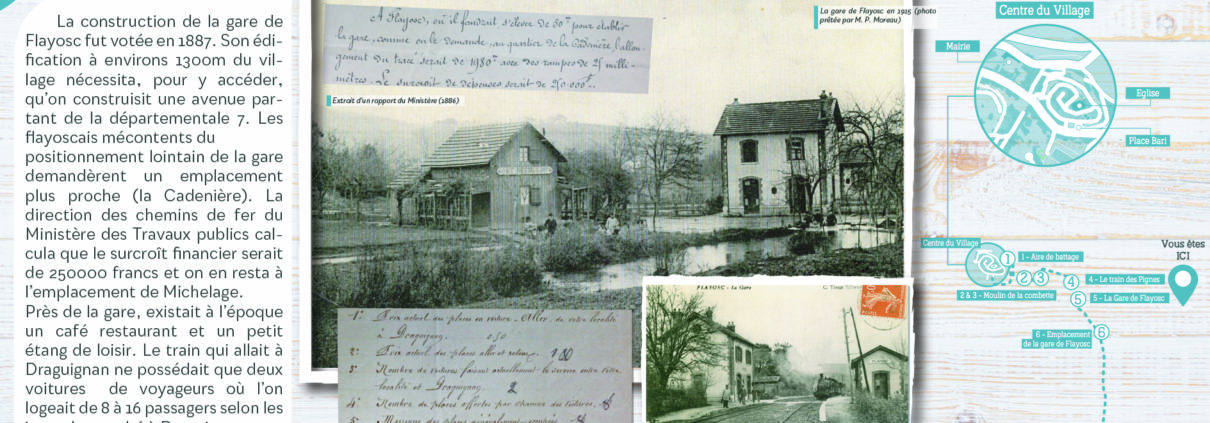 La construction de la gare de
Flayosc fut votée en 1887. Son édi-
fication à environs 1300m du vil-
lage nécessita, pour y accéder,
qu'on construisit une avenue par-
tant de la départementale 7. Les
flayoscais mécontents du
positionnement lointain de la gare
demandèrent un emplacement
plus proche (la Cadenière). La
direction des chemins de fer du
Ministère des Travaux publics cal-
cula que le surcroît financier serait
de 250000 francs et on en resta à
l'emplacement de Michelage.
Près de la gare, existait à l'époque
un café restaurant et un petit
étang de loisir. Le train qui allait à
Draguignan ne possédait que deux
voitures de voyageurs où l'on
logeait de 8 à 16 passagers selon les
A Flayosc, où il faudrait s'élever de 50m pour établir
la gare, comme on le demande, au quartier de la Cadenière, l'allon-
gement du tracé serait de 1980m avec des rampes de 25 milli-
mètres. Le surcroît de dépenses serait de 250.000f.
Extrait d'un rapport du Ministère (1886)
La gare de Flayosc en 1915 (photo
prêtée par M. P. Moreau)
1° Prix actuel des places en voiture - Aller, de votre localité
à Draguignan. 0.50
2° Prix actuel des places aller et retour. 1.00
3° Nombre de voitures faisant actuellement le service entre votre
localité et Draguignan 2
4° Nombre de places offertes par chacune des voitures, 8
FLAYOSC - La Gare
Centre du Village
Mairie
Eglise
Place Bari
Centre du Village
1
1 - Aire de battage
2
3
2 & 3 - Moulin de la combette
4
4 - Le train des Pignes
5
5 - La Gare de Flayosc
6
6 - Emplacement
de la gare de Flayosc
Vous êtes
ICI